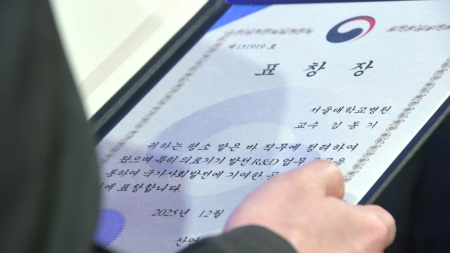 제 151919 호
표 창 장
서울대학교병원
교수 김 동 기
귀하는 평소 맡은 바 직무에 정려하여
왔으며 특히 의료기기 발전 R&D 업무
통하여 국가사회발전에 기여한
에 표창합니다.
2025년 12월
산업